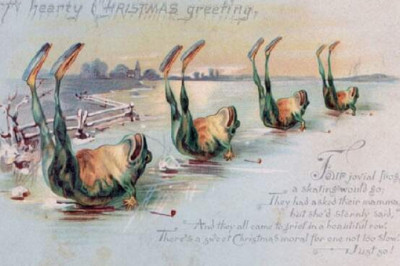 A hearty CHRISTMAS greeting,
Four jovial frogs
a skating would go;
They had asked their mamma,
but she'd sternly said, "
And they all came to grief in a beautiful row.
There's a sweet Christmas moral for one not too slow.
Just so!